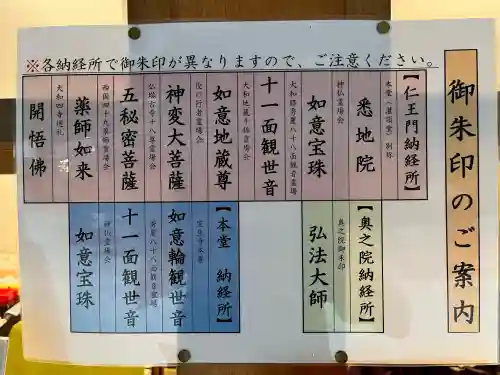 ※各納経所で御朱印が異なりますので、ご注意ください。
御朱印のご案内
【仁王門納経所】
本堂（灌頂堂）別称
悉地院
神仏霊場会
如意宝珠
大和路秀麗八十八面観音霊場
十一面観世音
大和地蔵十福霊場会
如意地蔵尊
役の行者霊場会
神変大菩薩
仏塔古寺十八尊霊場会
五秘密菩薩
西国四十九薬師霊場会
薬師如来
大和四寺巡礼
開悟佛
【奥之院納経所】
奥之院御朱印
弘法大師
【本堂　納経所】
室生寺本尊
如意輪観世音
秀麗八十八面観音霊場
十一面観世音
神仏霊場会
如意宝珠